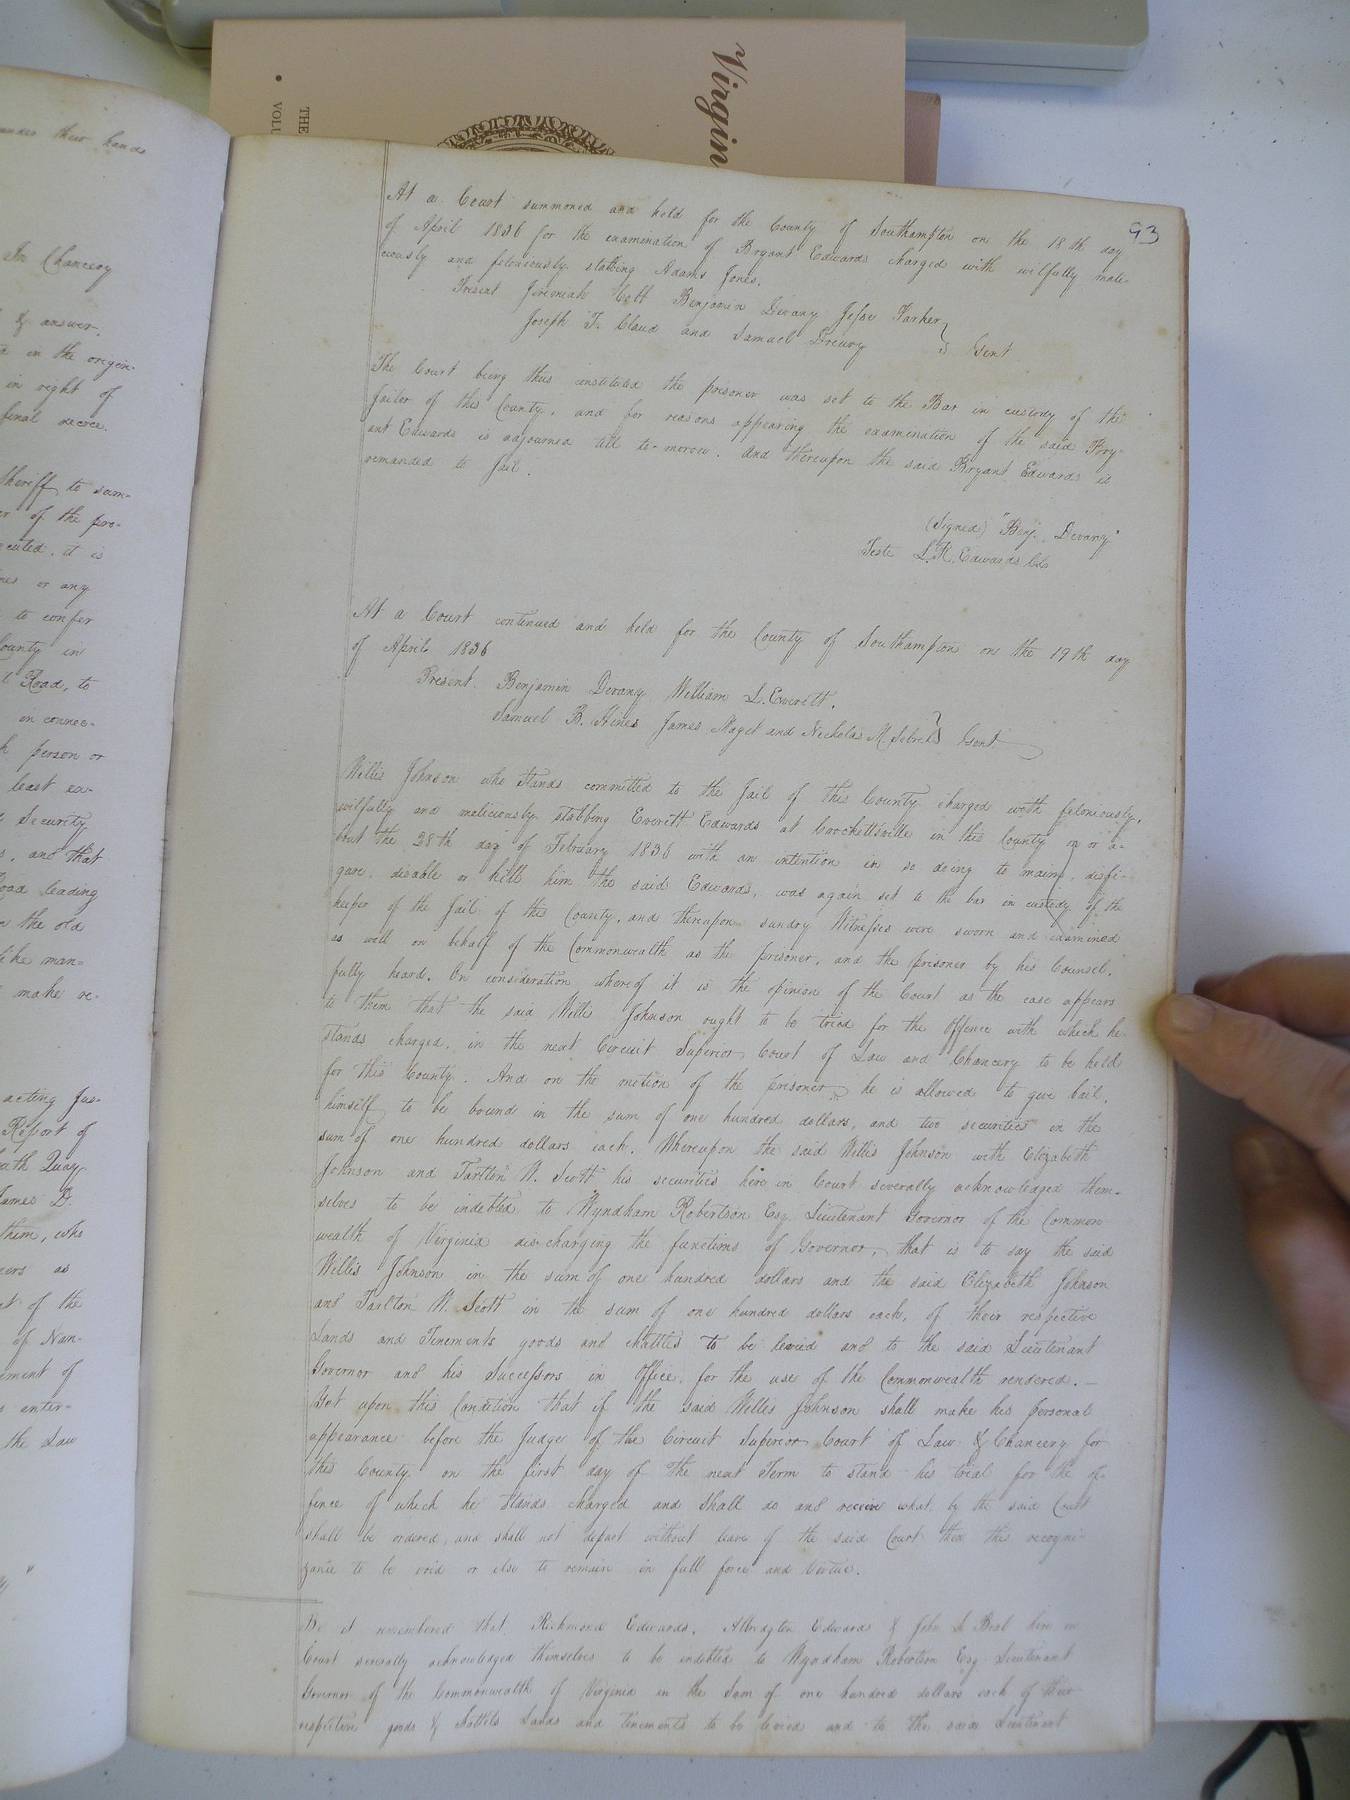 Virgin
THE
VOLU
andes their hands
In Chancery
& answer.
in the origin-
in right of
final decree.
Sheriff to sum-
er of the pro-
ecuted, it is
or any
to confer
County in
Road, to
in connec-
h person or
least ex-
Security
, and that
Road leading
the old
like man-
make re-
acting Jus-
Report of
James D.
them, who
as
of the
of Nan-
ment of
enter-
the Law
93
At a Court summoned and held for the County of Southampton on the 18th day
of April 1836 for the examination of Bryant Edwards charged with wilfully mali-
ciously and feloniously stabbing Adams Jones.
Present Jeremiah Benjamin Devany Jesse Parker
Joseph T. Claud and Samuel Drewry } Gent
The Court being thus instituted the prisoner was set to the Bar in custody of the
Jailer of this County, and for reasons appearing the examination of the said Bry-
ant Edwards is adjourned till to-morow. And thereupon the said Bryant Edwards is
remanded to Jail.
(Signed) "Benj. Devany"
Teste L.R. Edwards Clk
At a Court continued and held for the County of Southampton on the 19th day
of April 1836
Present. Benjamin Devany William L. Everett,
Samuel B. Hines James Maget and Nicholas M Sebrell } Gent
Willis Johnson who stands committed to the Jail of this County charged with feloniously,
wilfully and maliciously stabbing Everett Edwards at Crockettsville in this County on or a-
bout the 28th day of February 1836 with an intention in so doing to maim, disfi-
gure, disable or kill him the said Edwards, was again set to the bar in custody of the
keeper of the Jail of this County, and thereupon sundry Witnesses were sworn and examined
as well on behalf of the Commonwealth as the prisoner, and the prisoner by his Counsel,
fully heard. On consideration whereof it is the opinion of the Court as the case appears
to them that the said Willis Johnson ought to be tried for the Offence with which he
stands charged, in the next Circuit Superior Court of Law and Chancery to be held
for this County. And on the motion of the prisoner, he is allowed to give bail,
himself to be bound in the sum of one hundred dollars, and two securities in the
sum of one hundred dollars each. Whereupon the said Willis Johnson with Elizabeth
Johnson and Tarlton W. Scott his securities here in Court severally acknowledged them-
selves to be indebted to Wyndham Robertson Esq. Lieutenant Governor of the Common
wealth of Virginia discharging the functions of Governor, that is to say the said
Willis Johnson in the sum of one hundred dollars and the said Elizabeth Johnson
and Tarlton W. Scott in the sum of one hundred dollars each, of their respective
Lands and Tenements goods and chattles to be levied and to the said Lieutenant
Governor and his Successors in Office, for the use of the Commonwealth rendered. —
Yet upon this Condition that if the said Willis Johnson shall make his personal
appearance before the Judge of the Circuit Superior Court of Law & Chancery for
this County on the first day of the next Term to stand his trial for the of-
fence of which he stands charged and shall do and receive what by the said Court
shall be ordered, and shall not depart without leave of the said Court then this recogni-
zance to be void or else to remain in full force and virtue.
Be it remembered that Richmond Edwards, Albridgton Edwards & John here in
Court severally acknowledged themselves to be indebted to Wyndham Robertson Esq Lieutenant
Governor of the Commonwealth of Virginia in the Sum of one hundred dollars each of their
respective goods & chattels Lands and tenements to be levied and to the said Lieutenant